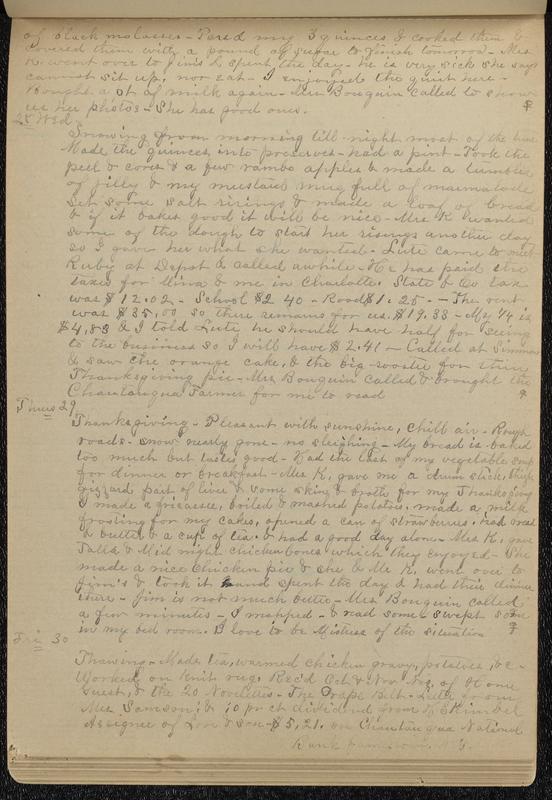 of black molasses - Pared my 3 quinces & cooked them &
covered them with a pound of sugar to finish tomorrow - Mrs
K. went over to Jim's & spent the day - he is very sick she says
cannot sit up, nor eat - I enjoyed the quiet here -
Bought a qt of milk again - Mrs Bouquin called to show
us her photos - She has good ones.
28 Wed -
Snowing from morning till night most of the time
Made the quinces into preserves - had a pint - Took the
peel & cores & a few rambo apples & made a tumbler
of jelly & my mustard mug full of marmalade
Set some salt risings & made a loaf of bread
& if it bakes good it will be nice - Mrs K wanted
some of the dough to start her risings another day
so I gave her what she wanted - Lute came to meet
Ruby at Depot & called awhile - He has paid the
taxes for Mina & me in Charlotte. State & Co tax
was $12.02 - School $2 40 - Road $1.25 - The rent
was $35.00 so there remains for us $19.33 - My 1/4 is
$4.83 & I told Lute he should have half for seeing
to the business so I will have $2.41 - Called at Simmons
& saw the orange cake, & the big rooster for their
Thanksgiving pie - Mrs Bouquin called & brought the
Chautauqua Farmer for me to read
Thurs 29
Thanksgiving - Pleasant with sunshine, chill air - Rough
roads - snow nearly gone - no sleighing - My bread is baked
too much but tastes good - Had the last of my vegetable soup
for dinner or breakfast - Mrs K, gave me a drum stick, thigh
gizzard part of liver & some skin & broth for my Thanksgiving
I made a fricassee, boiled & mashed potatoes, made a milk
frosting for my cakes, opened a can of strawberries. had bread
& butter & a cup of tea. & had a good day alone - Mrs K, gave
Tabba & Mid night chicken bones which they enjoyed - She
made a nice Chicken pie & she & Mr K, went over to
Jim's & took it and spent the day & had their dinner
there - Jim is not much better - Mrs Bouquin called
a few minutes - I mopped - & read some & swept some
in my bed room. I love to be Mistress of the situation
Fri 30
Thawing - Made tea, warmed chicken gravy, potatoes, &c -
Worked on knit rug. Rec'd Oct & Nov Nos, of Home
Guest, & the 20 Novelties - The Grape Belt - Letter from
Mrs Samson, & 10 pr ct dividend from
Assignee of & Son $5,21. on Chautauqua National
Bank